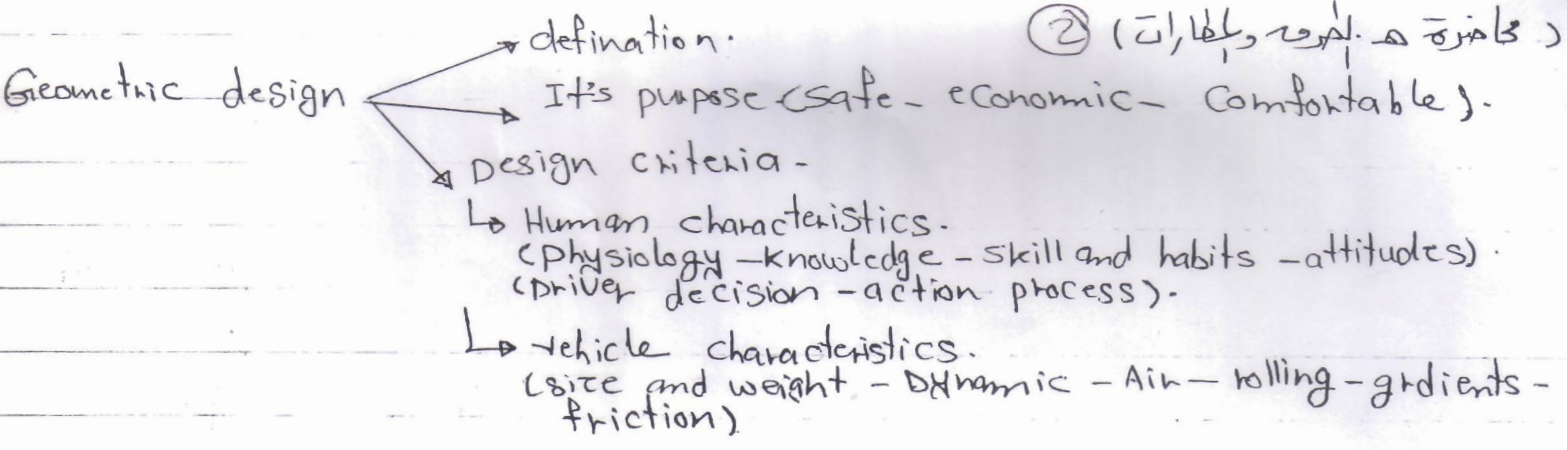 (محاضرة هـ. الطرق والمطارات) ②
defination.
Geometric design
It's purpose (safe - economic - comfortable).
Design criteria -
Human characteristics.
(physiology - knowledge - skill and habits - attitudes).
(Driver decision - action process).
vehicle characteristics.
(size and weight - Dynamic - Air - rolling - grdients -
friction)